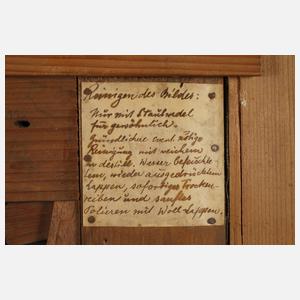 Reinigen des Bildes:
Nur mit Staubwedel
für gewöhnlich.
Gründliche event. nötige
Reinigung mit weichem
in destill. Wasser befeuchte-
tem, wieder ausgedrücktem
Lappen, sofortiges Trocken-
reiben und sanftes
Polieren mit Woll-Lappen.